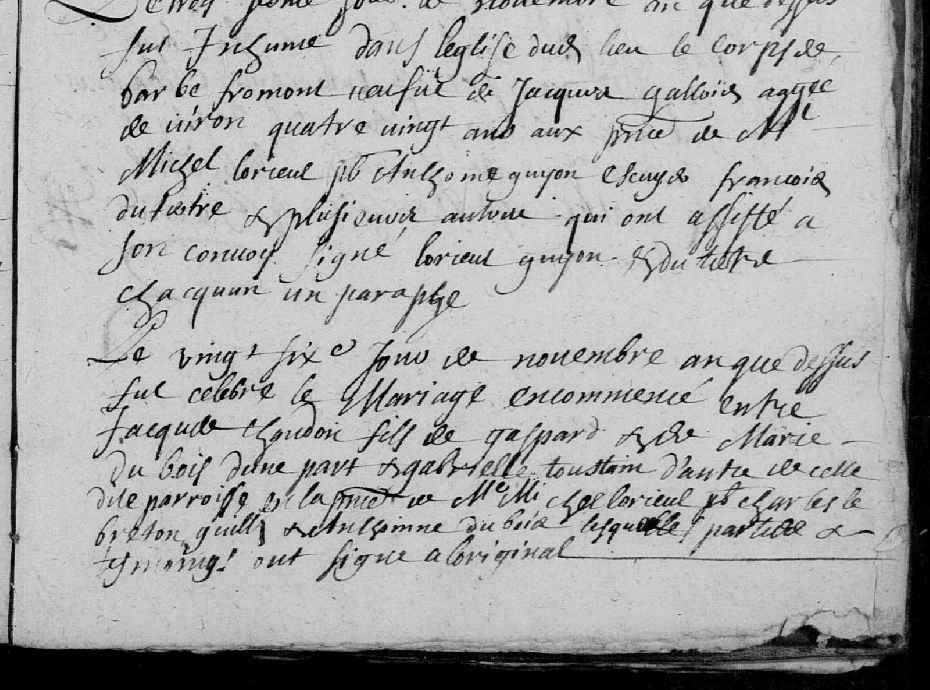 Le cinq jour de novembre an que dessus
fut Inhumé dans leglise dud lieu le corps de
barbe fromont de Jacques gallois aagée
de viron quatre vingt ans aux pnce de Mre
Michel lorieul pb Anthoine guyon escuyer francois
du tertre & plusieurs autres qui ont assisté a
son convoy signé lorieul guyon & du tertre
chacqun un paraphe
Le vingt sixe jour de novembre an que dessus
fut celebre le Mariage encommencé entre
Jacques chaudon fils de gaspard & de Marie
du bois dune part & gabrielle toustain d'autre de cette
dite parroisse en la pnce de Me Michel lorieul pb charles le
breton guill & Anthoinne du bois lesquelles parties &
tesmoings ont signe a loriginal